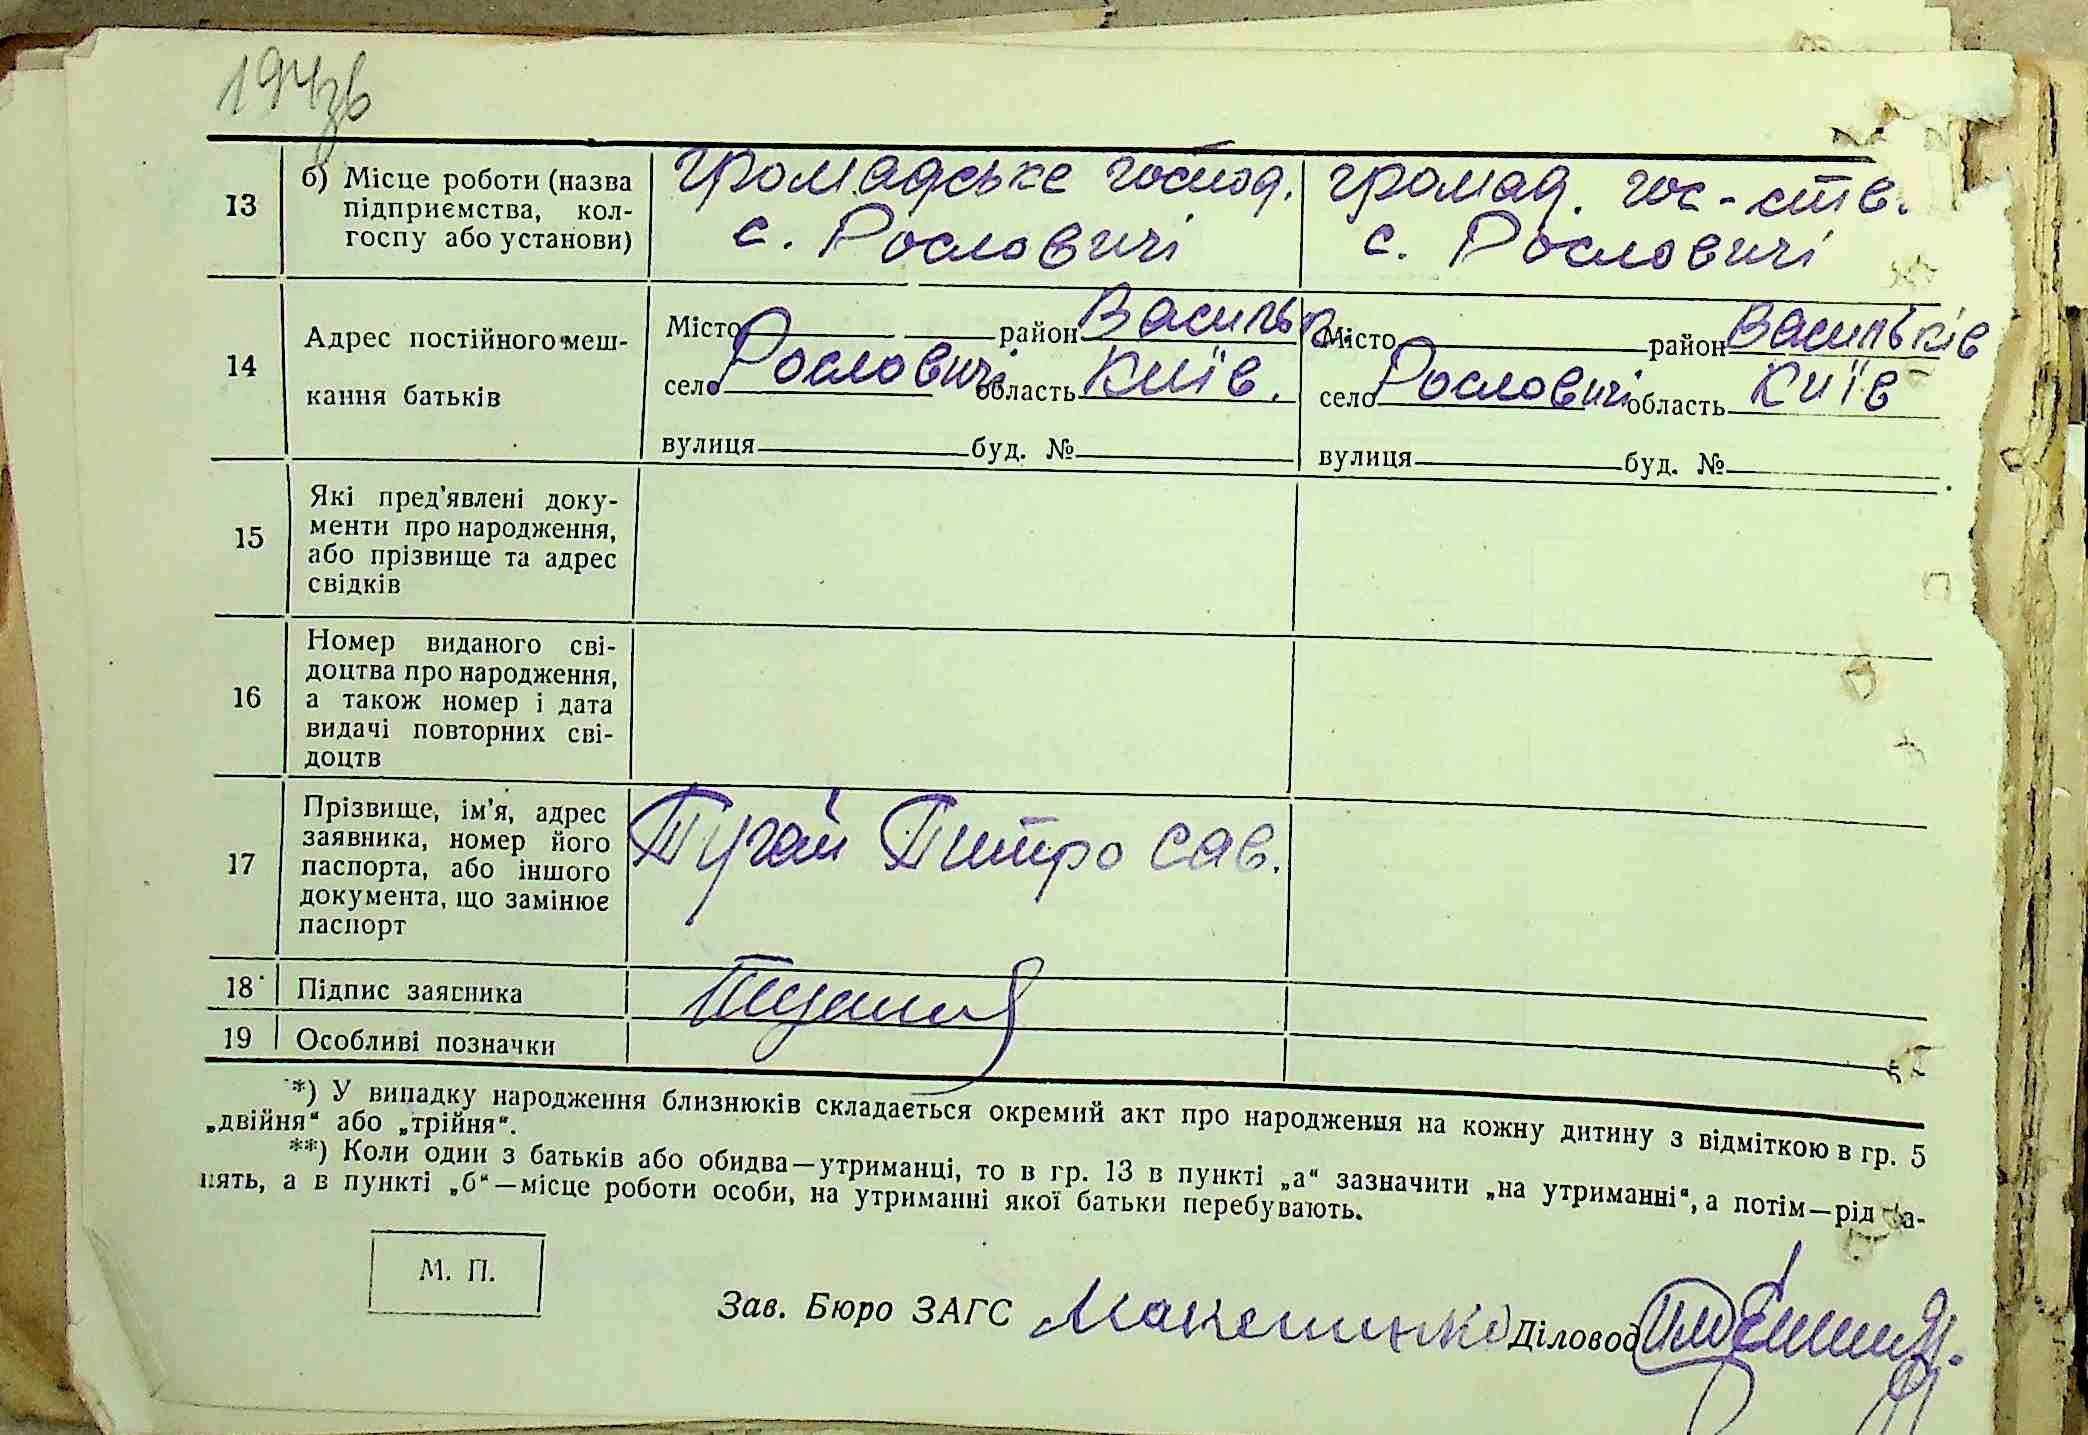 194зв
13 б) Місце роботи (назва підприємства, колгоспу або установи)
громадське господ. громад. гос-ств.
с. Рословичі с. Рословичі
14 Адрес постійного мешкання батьків
Місто район Васильк. Місто район Васильків
село Рословичі область Київ. село Рословичі область Київ
вулиця буд. № вулиця буд. №
15 Які пред'явлені доку-
менти про народження,
або прізвище та адрес
свідків
16 Номер виданого сві-
доцтва про народження,
а також номер і дата
видачі повторних сві-
доцтв
17 Прізвище, ім'я, адрес
заявника, номер його
паспорта, або іншого
документа, що замінює
паспорт
Пугай Питро Сав.
18 Підпис заявника
19 Особливі позначки
*) У випадку народження близнюків складається окремий акт про народження на кожну дитину з відміткою в гр. 5
„двійня“ або „трійня“.
**) Коли один з батьків або обидва—утриманці, то в гр. 13 в пункті „а“ зазначити „на утриманні“, а потім—рід за-
нять, а в пункті „б“—місце роботи особи, на утриманні якої батьки перебувають.
М. П.
Зав. Бюро ЗАГС Діловод